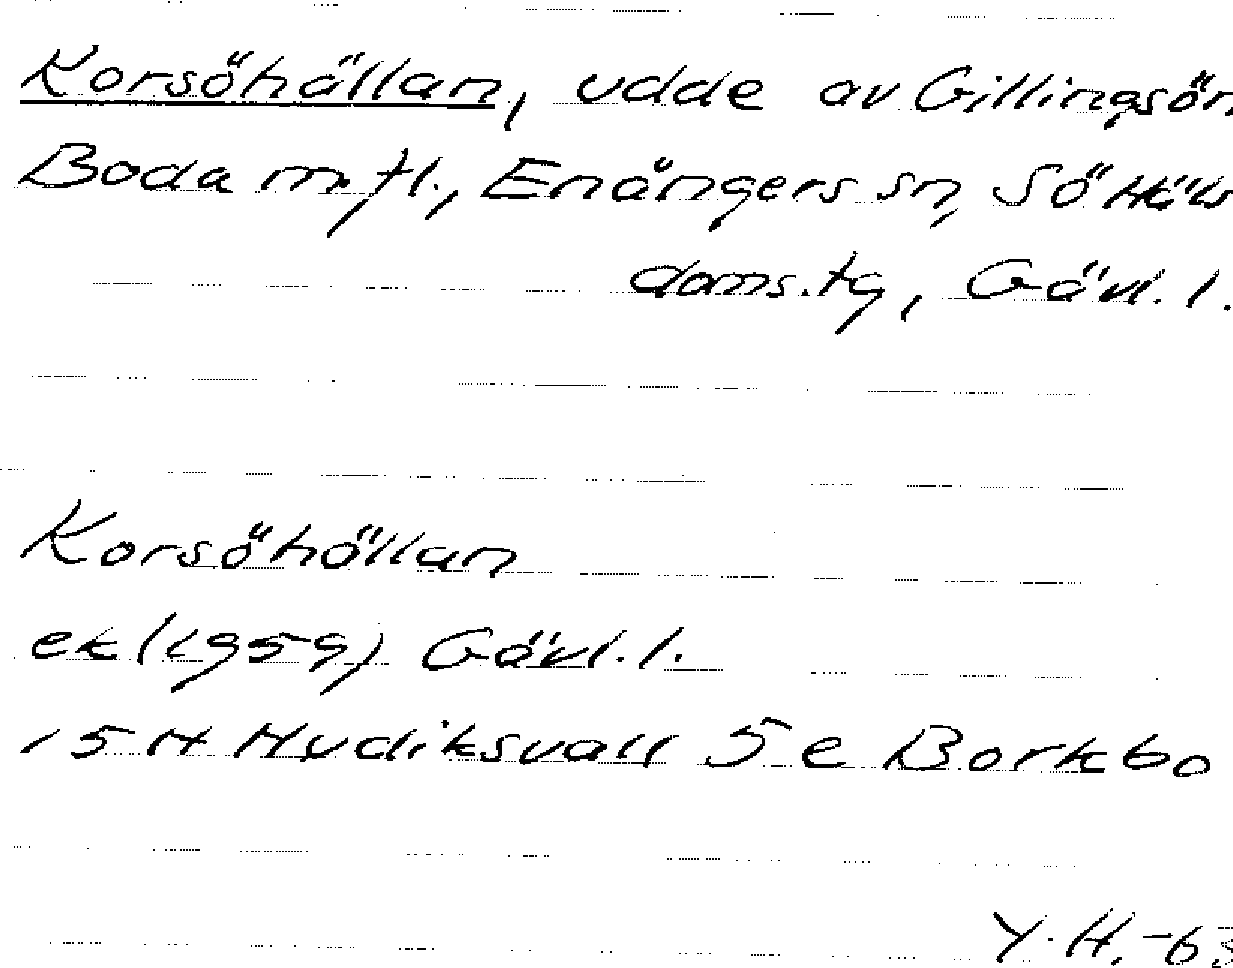 Korsöhällan, udde av Gillingsör.
Boda m.fl., Enångers sn, Sö Häls
doms.tg, Gävl. l.
Korsöhällan
ek (1959) Gävl. l.
15 H Hudiksvall 5 e Borkbo
Y. H. -63